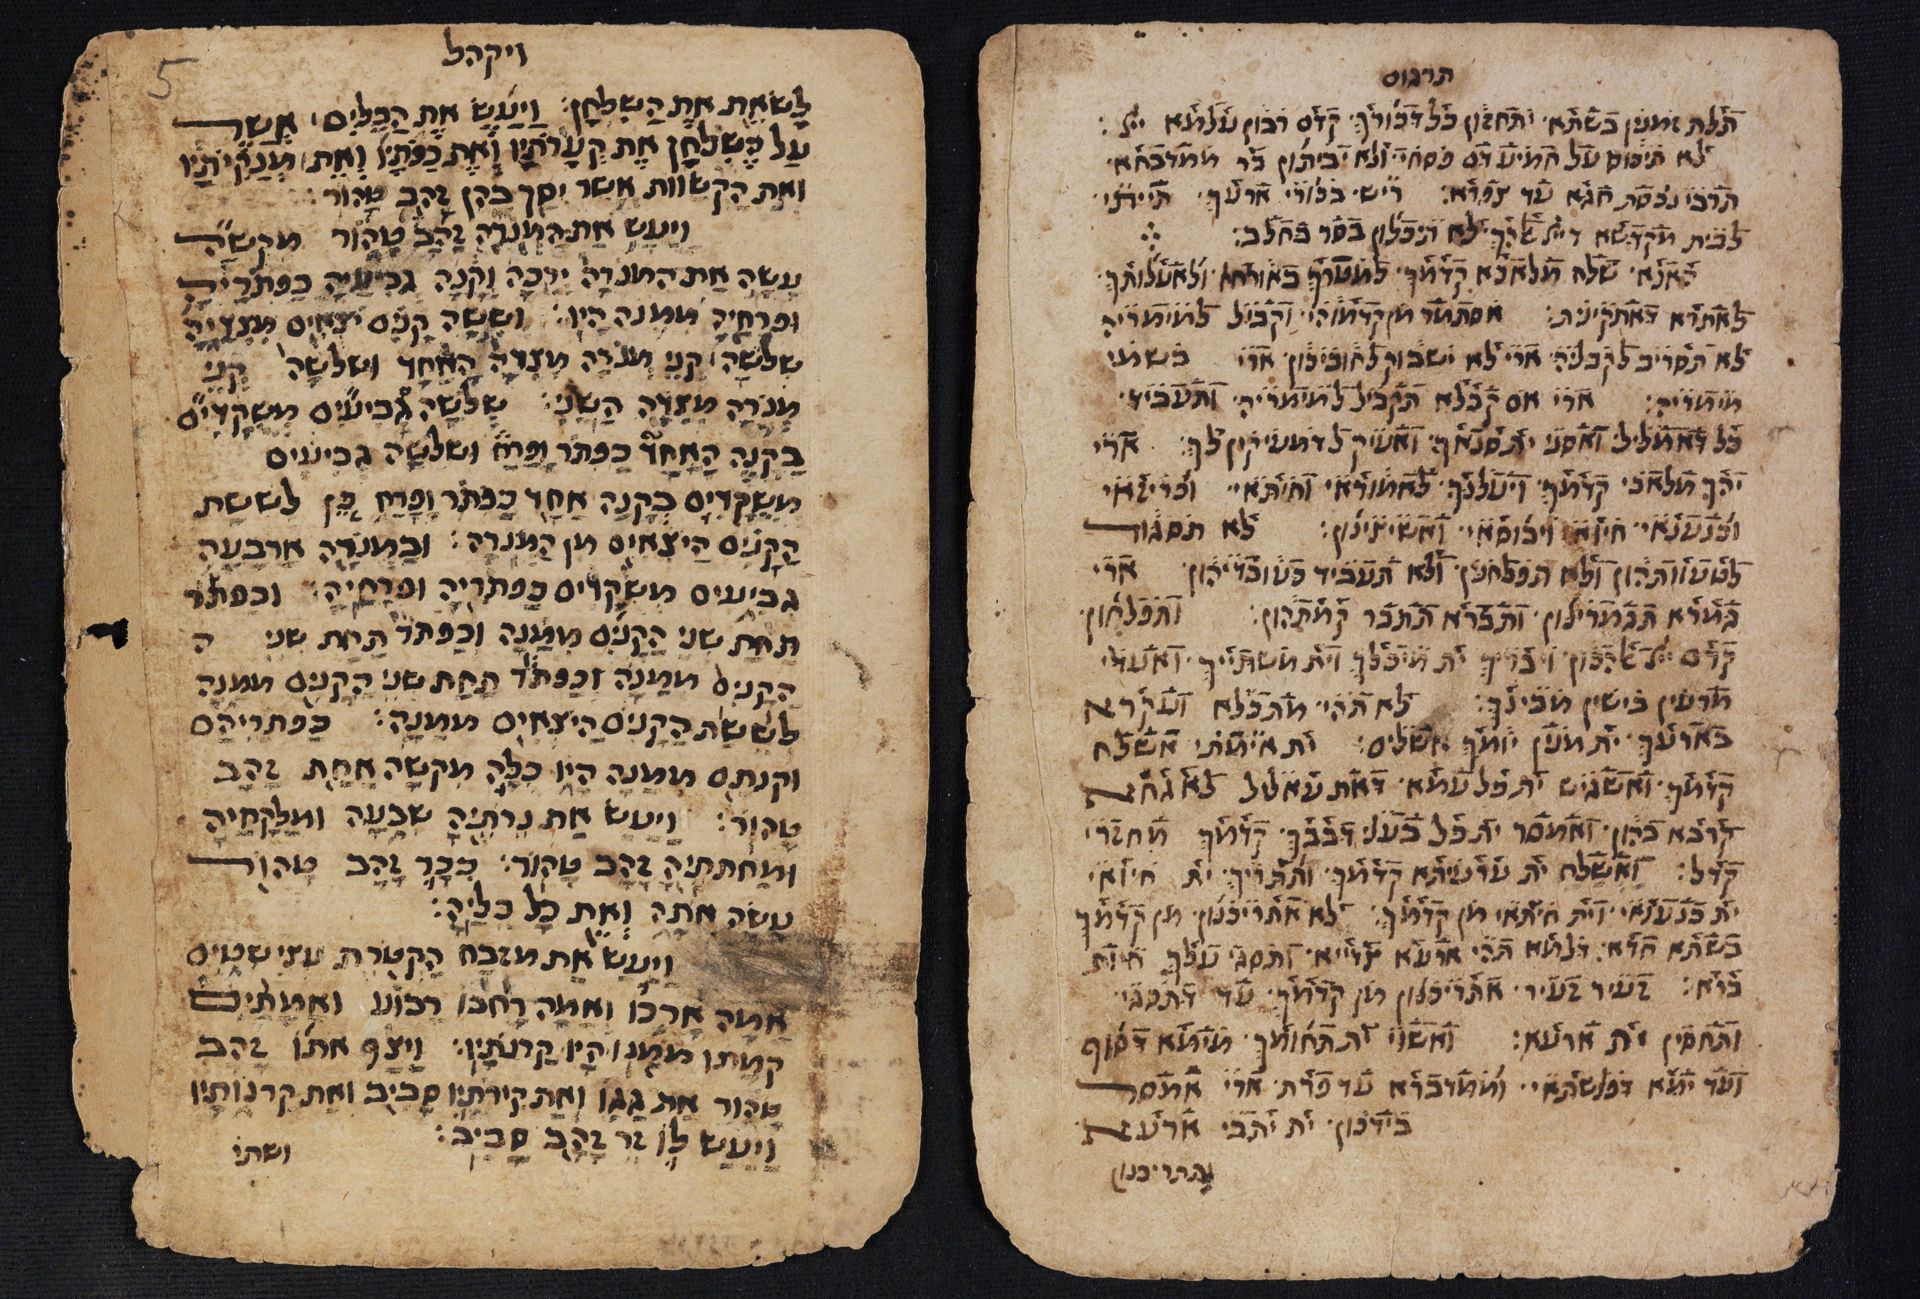 תרגום
תלת זמנין בשתא יתחזון כל דכורך קדם רבון עלמא ייי:
לא תיכוס על חמיע דם פסחי ולא יביתון בר ממדבחא
תרבי נכסת חגא עד צפרא: ריש בכורי ארעך תייתי
לבית מקדשא דייי אלהך לא תיכלון בסר בחלב:
האנא שלח מלאכא קדמך למטרך באורחא ולאעלותך
לאתרא דאתקינית: אסתמר מן קדמוהי וקביל למימריה
לא תסריב לקבליה ארי לא ישבוק לחוביכון ארי בשמי
מימריה: ארי אם קבלא תקביל למימריה ותעביד
כל דאמליל ואסני ית סנאך ואעיק לדמעיקין לך: ארי
יהך מלאכי קדמך ויעלנך לאמוראי וחיתאי ופריזאי
וכנענאי חיואי ויבוסאי ואשיצינון: לא תסגוד
לטעותהון ולא תפלחנין ולא תעביד כעובדיהון ארי
פגרא תפגרינון ותברא תתבר קמתהון: ותפלחון
קדם ייי אלהכון ויבריך ית מיכלך וית משתייך ואעדי
מרעין בישין מבינך: לא תהי מתכלא ועקרא
בארעך ית מנין יומך אשלים: ית אימתי אשלח
קדמך ואשגיש ית כל עמא דאת עאליל לאגחא
קרבא בהון ואמסר ית כל בעלי דבבך קדמך מחזרי
קדל: ואשלח ית ערעיתא קדמך ותתריך ית חיואי
ית כנענאי וית חיתאי מן קדמך: לא אתריכנון מן קדמך
בשתא חדא דלמא תהי ארעא צדייא ותסגי עלך חיות
ברא: זעיר זעיר אתריכנון מן קדמך עד דתסגי
ותחסין ית ארעא: ואשוי ית תחומך מימא דסוף
ועד ימא דפלשתאי וממדברא עד פרת ארי אמסר
בידכון ית יתבי ארעא
ותתריכנון
5
ויקהל
לשאת את השלחן: ויעש את הכלים אשר
על השלחן את קערתיו ואת כפתיו ואת מנקיתיו
ואת הקשוות אשר יסך בהן זהב טהור:
ויעש את המנרה זהב טהור מקשה
עשה את המנרה ירכה וקנה גביעיה כפתריה
ופרחיה ממנה היו: וששה קנים יצאים מצדיה
שלשה קני מנרה מצדה האחד ושלשה קני
מנרה מצדה השני: שלשה גביעים משקדים
בקנה האחד כפתר ופרח ושלשה גביעים
משקדים בקנה אחד כפתר ופרח כן לששת
הקנים היצאים מן המנרה: ובמנרה ארבעה
גביעים משקדים כפתריה ופרחיה: וכפתר
תחת שני הקנים ממנה וכפתר תחת שני ה
הקנים ממנה וכפתר תחת שני הקנים ממנה
לששת הקנים היצאים ממנה: כפתריהם
וקנתם ממנה היו כלה מקשה אחת זהב
טהור: ויעש את נרתיה שבעה ומלקחיה
ומחתתיה זהב טהור: ככר זהב טהור
עשה אתה ואת כל כליה:
ויעש את מזבח הקטרת עצי שטים
אמה ארכו ואמה רחבו רבוע ואמתים
קמתו ממנו היו קרנתיו: ויצף אתו זהב
טהור את גגו ואת קירתיו סביב ואת קרנותיו
ויעש לו זר זהב סביב:
ושתי